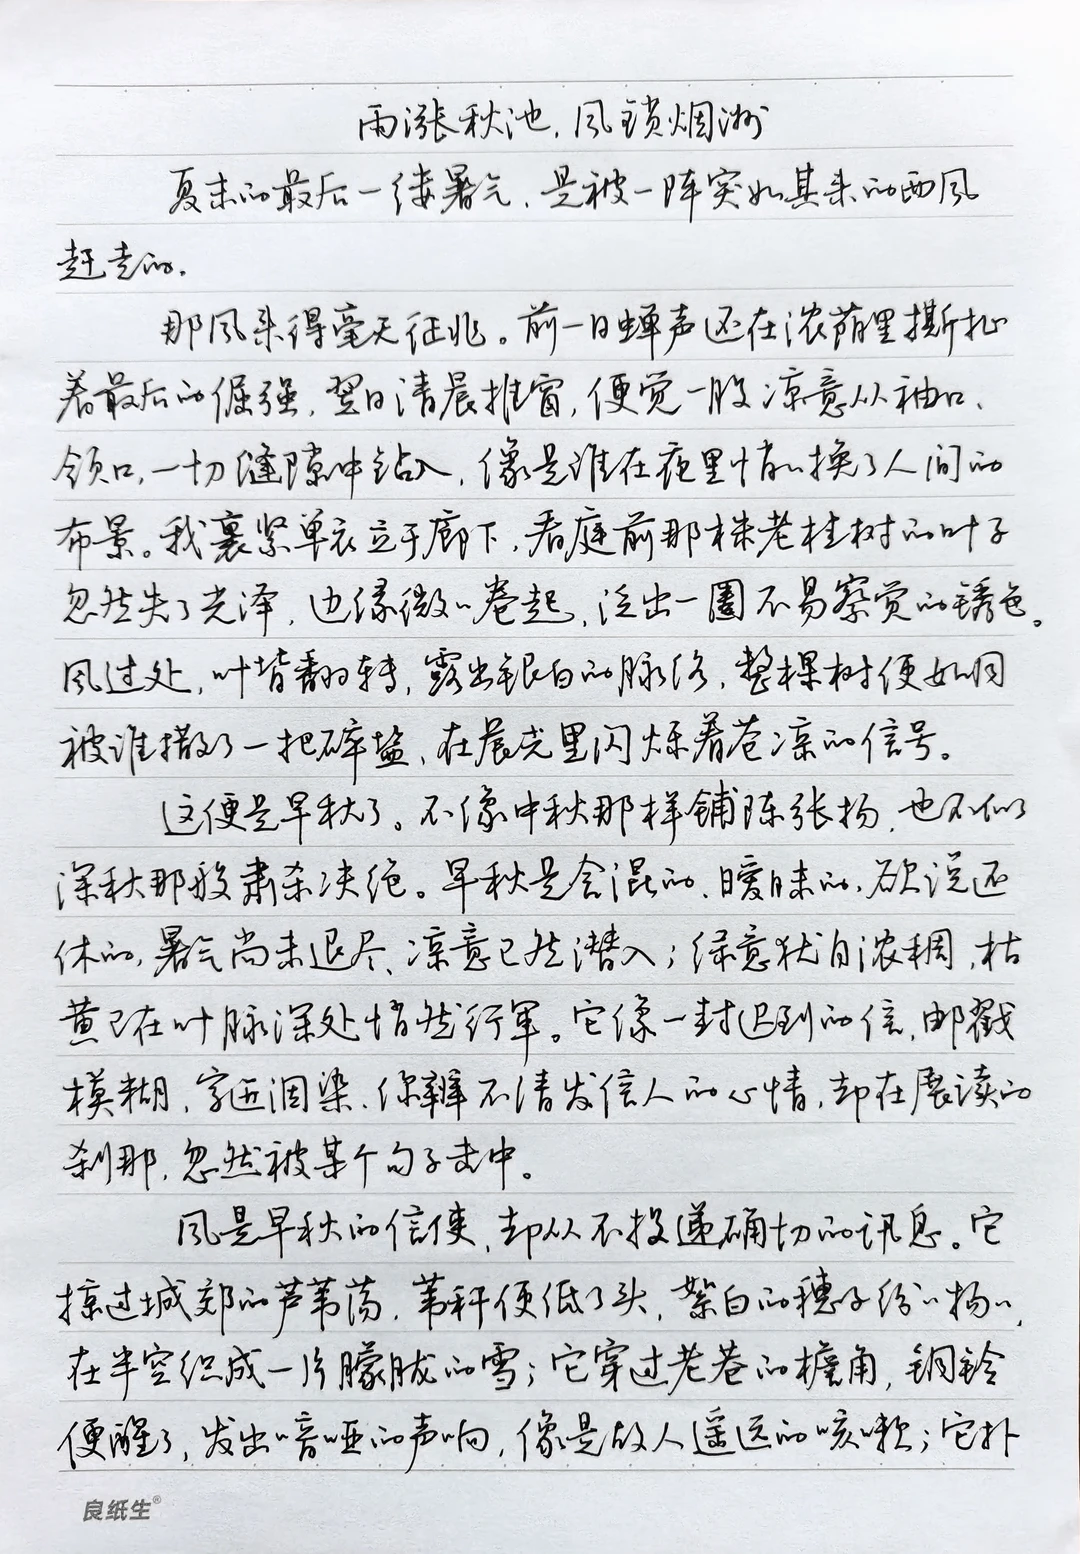 雨涨秋池,风锁烟洲
夏末的最后一缕暑气,是被一阵突如其来的西风
赶走的。
那风来得毫无征兆。前一日蝉声还在浓荫里撕扯
着最后的倔强,翌日清晨推窗,便觉一股凉意从袖口、
领口,一切缝隙中钻入,像是谁在夜里悄悄换了人间的
布景。我裹紧单衣立于廊下,看庭前那株老桂树的叶子
忽然失了光泽,边缘微微卷起,泛出一圈不易察觉的锈色。
风过处,叶背翻转,露出银白的脉络,整棵树便如同
被谁撒了一把碎盐,在晨光里闪烁着苍凉的信号。
这便是早秋了。不像中秋那样铺陈张扬,也不似
深秋那般肃杀决绝。早秋是含混的、暧昧的,欲说还
休的,暑气尚未退尽、凉意已然潜入;绿意犹自浓稠,枯
黄已在叶脉深处悄然行军。它像一封迟到的信,邮戳
模糊,字迹洇染,你辨不清发信人的心情,却在展读的
刹那,忽然被某个句子击中。
风是早秋的信使,却从不投递确切的讯息。它
掠过城郊的芦苇荡,苇秆便低了头,絮白的穗子纷纷扬扬,
在半空织成一片朦胧的雪;它穿过老巷的檐角,铜铃
便醒了,发出喑哑的声响,像是故人遥远的咳嗽;它扑
良纸生®